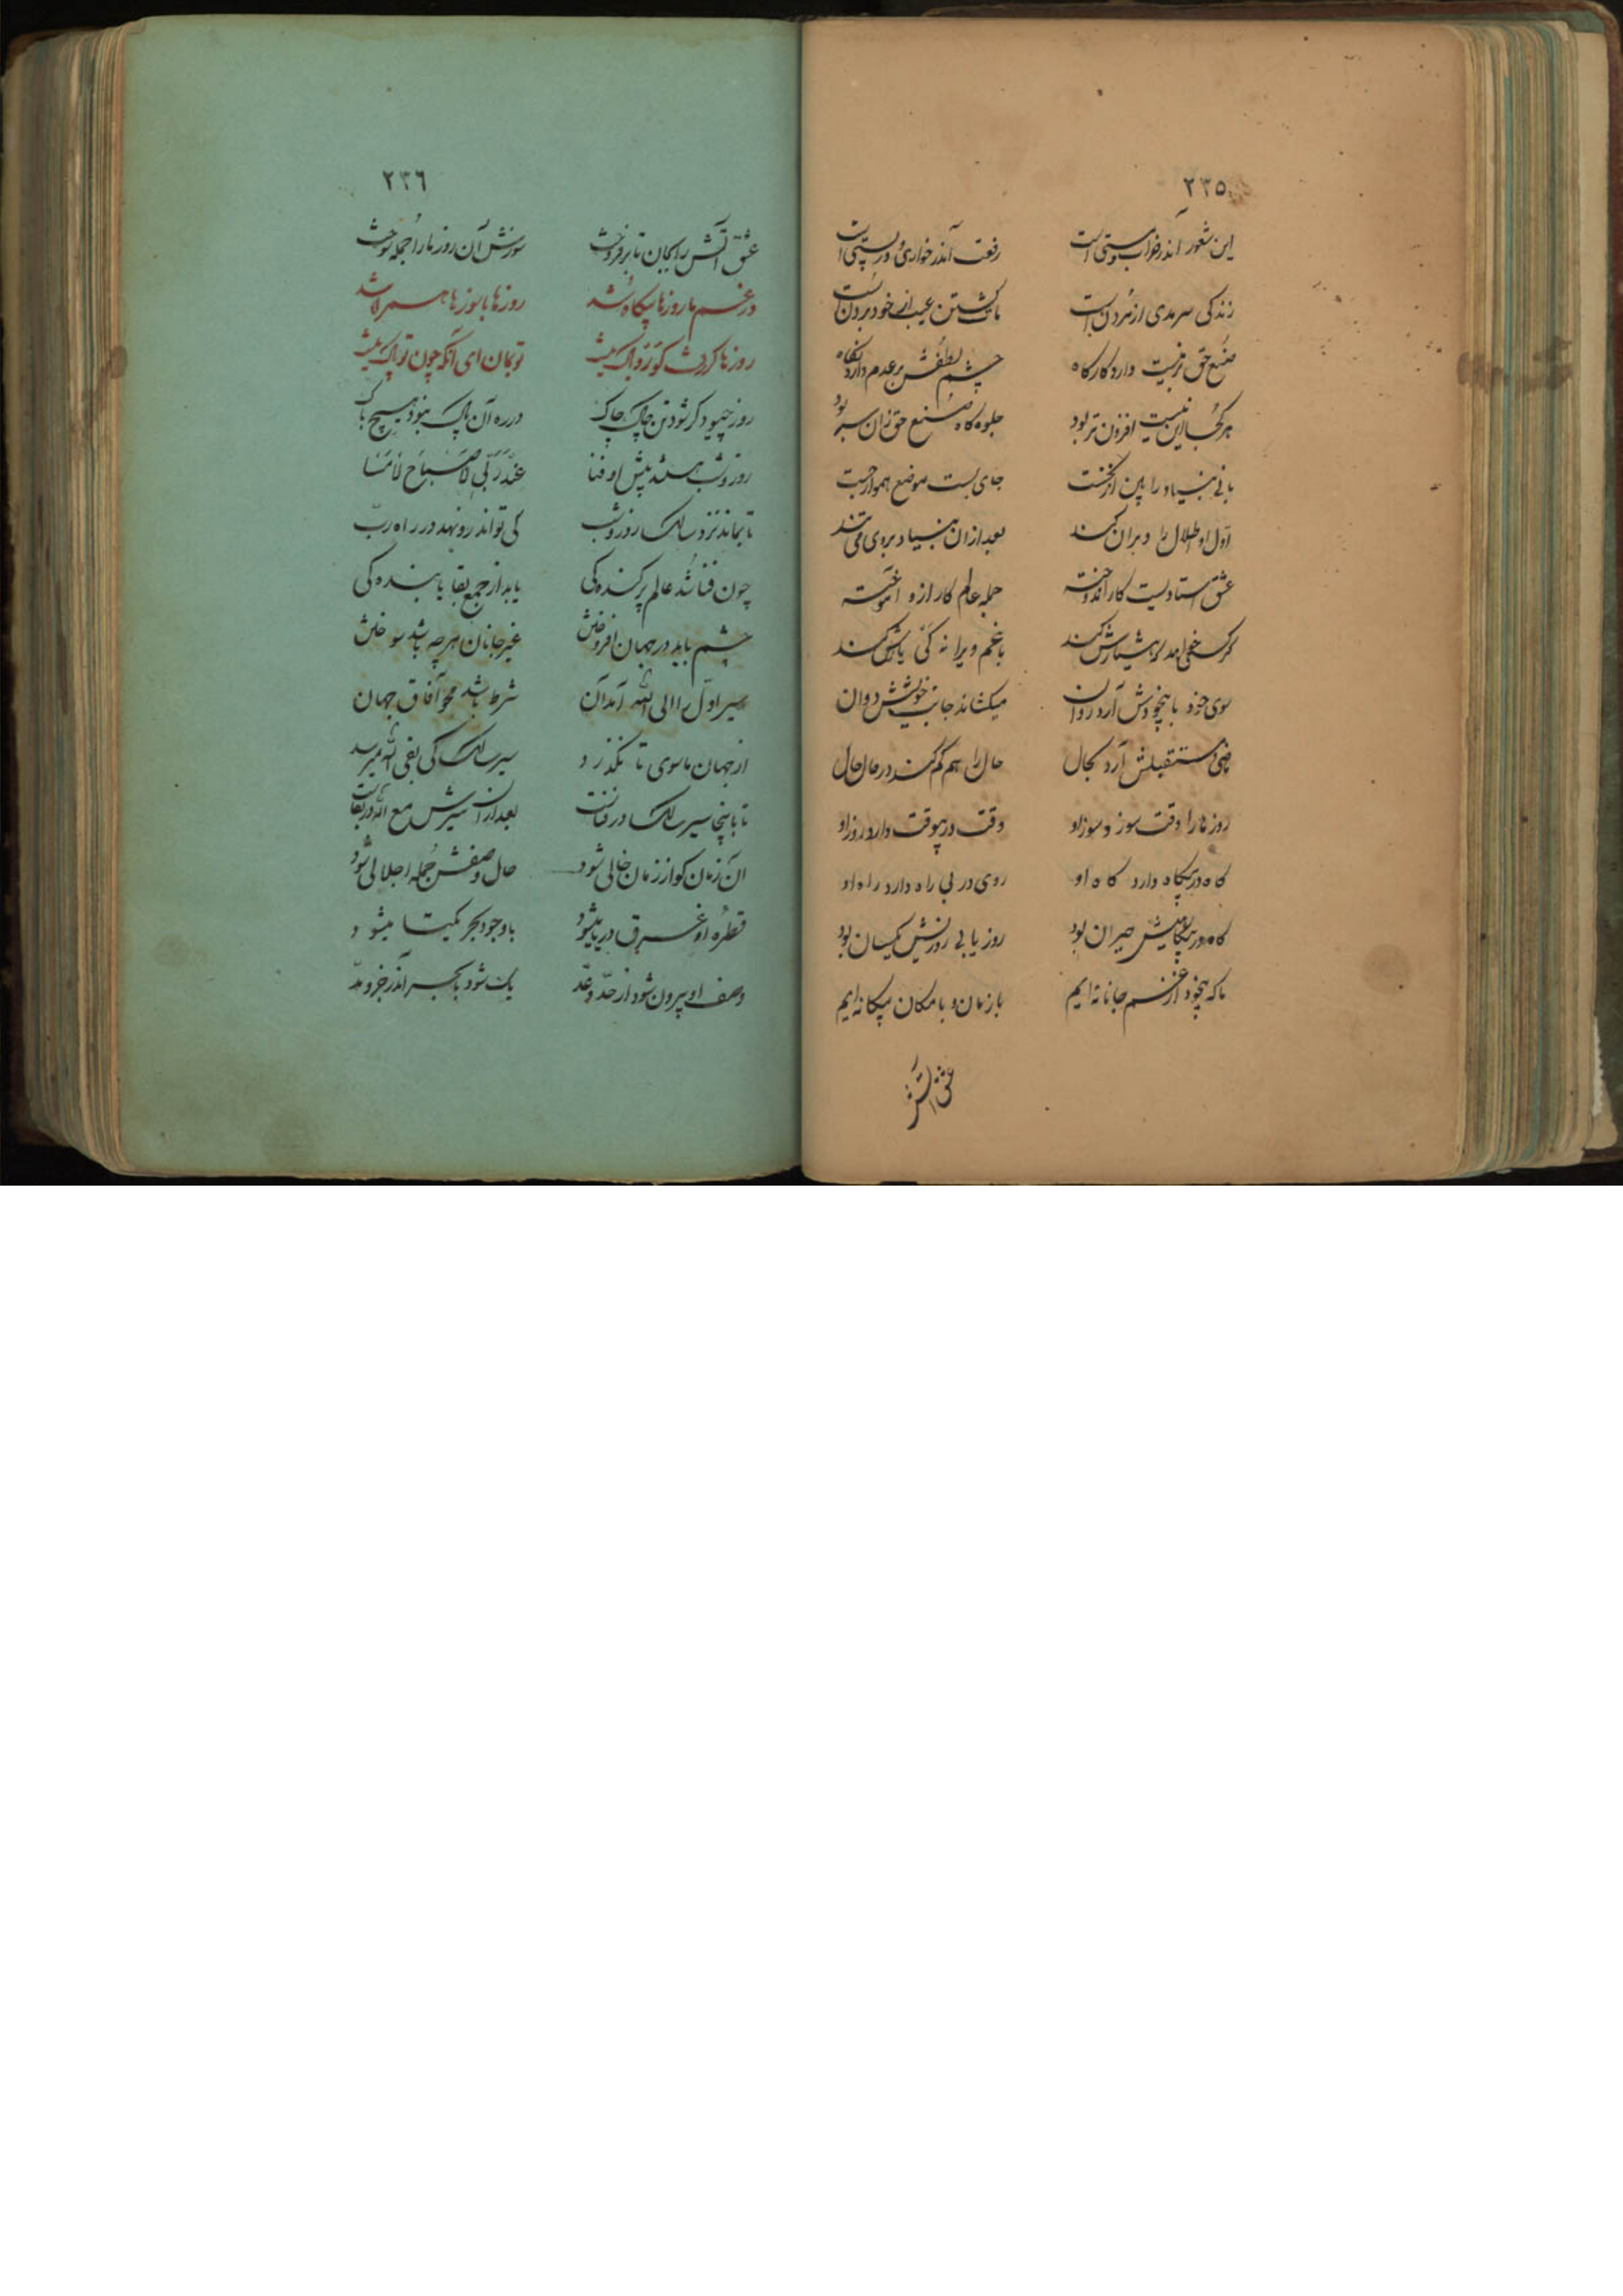 ۲۳۵
این شعور اندر خواب و مستی است رفعت اندر خواری و در پستی است
زندگی سرمدی از مردن است پاک گشتن عیب از خود بردن است
صنع حق در نیست دارد کارگاه چشم لطفش بر عدم دارد نگاه
هر کجا این نیست افزون‌تر بود جلوه‌گاه صنع حق زان سر بود
بانی بنیاد را بین از نخست جای پست موضع هموار جست
اول او اطلال را ویران کند بعد از آن بنیاد بر وی می‌تند
عشق استادیست کار اندوخته جمله عالم کار ازو آموخته
گر کسی خواهد که هشیارش کند با غم ویرانه‌گی یارش کند
سوی خود با بیخودش آرد روان میکشاند جانب خویشش دوان
مستقبلش آرد بحال حال را هم گم کند در حال حال
روز ما را وقت سوز و سوز او وقت در بیوقت دارد روز او
گاه در بیگاه دارد گاه او روی در بی راه دارد راه او
گاه در بیگاهیش حیران بود روز یابی روزنش یکسان بود
ما که بیخود از غم جانانه‌ایم با زمان و با مکان بیگانه‌ایم
عشق آتش
۲۳۶
عشق آتش را بجان تا برفروخت سوزش آن روز ما را جمله سوخت
در غم ما روزها بیگاه شد روزها با سوزها همراه شد
روزها گر رفت گو رو باک نیست تو بمان ای آنکه چون تو پاک نیست
روز چبود گر شود تن چاک چاک در ره آن پاک نبود هیچ باک
روز و شب هستند پیش او فنا عند ربی لا صباح لا مسا
تا بماند نزد سالک روز و شب کی تواند رو نهد در راه رب
چون فنا شد عالم پرکنده‌گی یابد از جمع بقا پاینده‌گی
چشم باید در جهان افروختن غیر جانان هر چه باشد سوختن
سیر اول را الی الله آمد آن شرط باشد محو آفاق جهان
از جهان ماسوی تا نگذرد سیر سالک کی بفی الله میرسد
تا باینجا سیر سالک در فناست بعد از آن سیرش مع الله در بقاست
آن زمان کو از زمان خالی شود حال وصفش جمله اجلالی شود
قطره او غرق دریا میشود با وجود بحر یکتا میشود
وصف او بیرون شود از حد و عد یک شود با بحر اندر جزر و مد